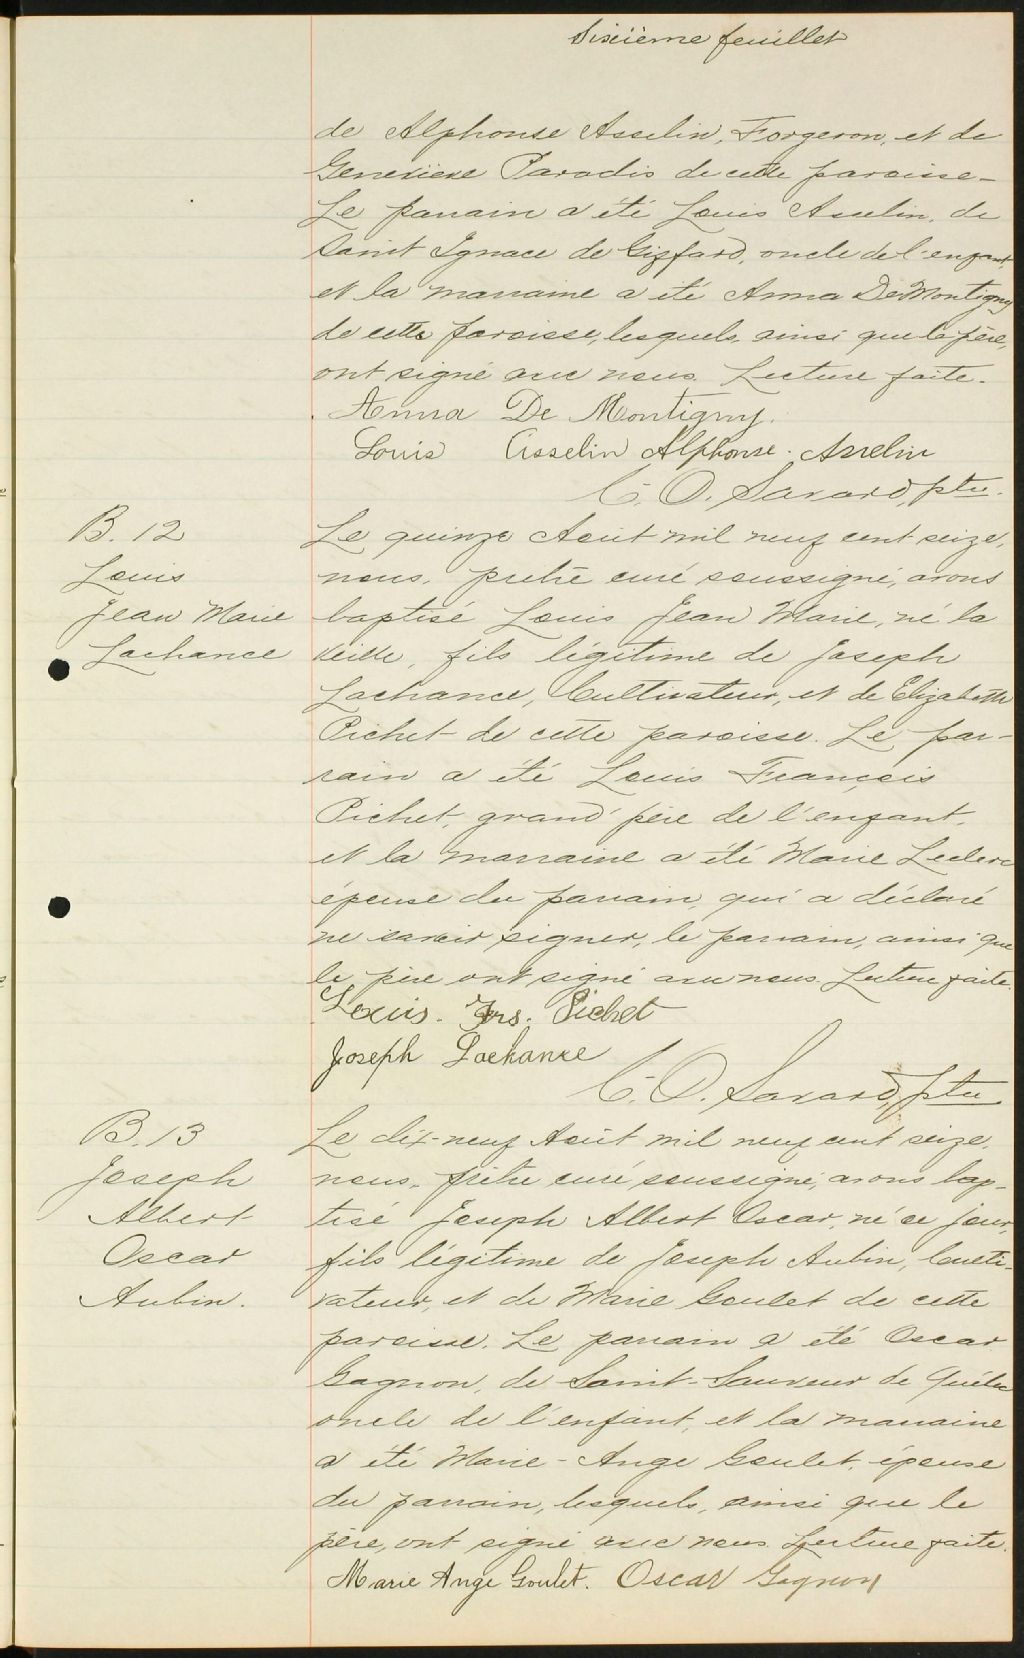 Sixième feuillet
de Alphonse Asselin, Forgeron, et de
Geneviève Paradis de cette paroisse –
Le parrain a été Louis Asselin, de
Saint Ignace de Giffard, oncle de l'enfant,
et la marraine a été Anna DeMontigny
de cette paroisse, lesquels, ainsi que le père,
ont signé avec nous. Lecture faite.
Anna De Montigny.
Louis Asselin Alphonse Asselin
C. O. Savard, ptre.
B. 12
Louis
Jean Marie
Lachance
Le quinze Août mil neuf cent seize,
nous, prêtre curé soussigné, avons
baptisé Louis Jean Marie, né la
veille, fils légitime de Joseph
Lachance, Cultivateur, et de Elizabeth
Pichet de cette paroisse. Le par-
rain a été Louis François
Pichet, grand'père de l'enfant,
et la marraine a été Marie Leclerc
épouse du parrain, qui a déclaré
ne savoir signer, le parrain, ainsi que
le père ont signé avec nous. Lecture faite.
Louis. Frs. Pichet
Joseph Lachance
C. O. Savard, ptre
B. 13
Joseph
Albert
Oscar
Aubin.
Le dix-neuf Août mil neuf cent seize,
nous, prêtre curé soussigné, avons bap-
tisé Joseph Albert Oscar, né ce jour,
fils légitime de Joseph Aubin, Culti-
vateur, et de Marie Goulet de cette
paroisse. Le parrain a été Oscar
Gagnon, de Saint-Sauveur de Québec
oncle de l'enfant, et la marraine
a été Marie-Ange Goulet, épouse
du parrain, lesquels, ainsi que le
père, ont signé avec nous. Lecture faite.
Marie Ange Goulet. Oscar Gagnon